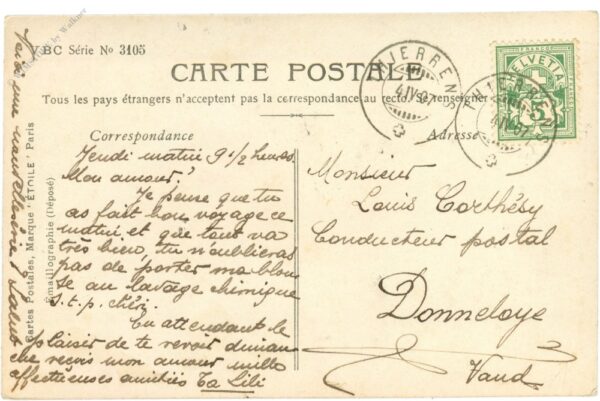 VBC Série No 3105
CARTE POSTALE
Tous les pays étrangers n'acceptent pas la correspondance au recto. Se renseigner
Correspondance
Jeudi matin 9 1/2 heures
Mon amour!
Je pense que tu
as fait bon voyage ce
matin et que tout va
très bien, tu n'oublieras
pas de porter ma blou
se au lavage chimique
s.t.p. chéri.
En attendant le
plaisir de te revoir diman
che reçois mon amour mille
affectueuses amitiés Ta Lili
Adresse
Monsieur
Louis Corthésy
Conducteur postal
Donneloye
Vaud
THIERRENS
4 IV 07
THIERRENS
4 IV 07
FRANCO
HELVETIA
5
Cartes Postales, Marque "ÉTOILE" Paris
Émaillographie (Déposé)
by Walkner